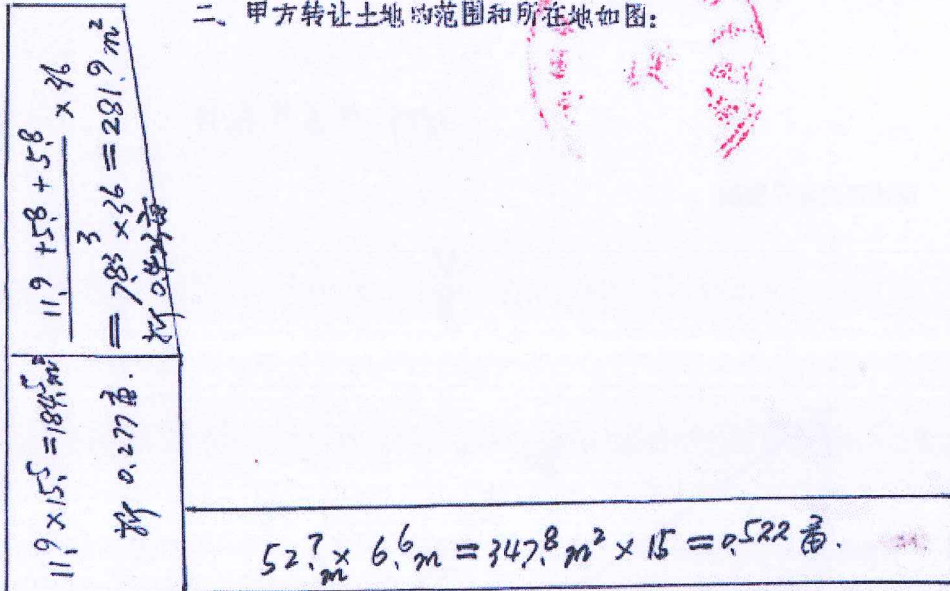 二、甲方转让土地的范围和所在地如图:
11.9 + 5.8 + 5.8
3
× 36
= 7.83 × 36 = 281.9 m²
折 0.423亩
11.9 × 15.5 = 184.5 m²
折 0.277亩.
52.7m × 6.6m = 347.8 m² × 15 = 0.522 亩.